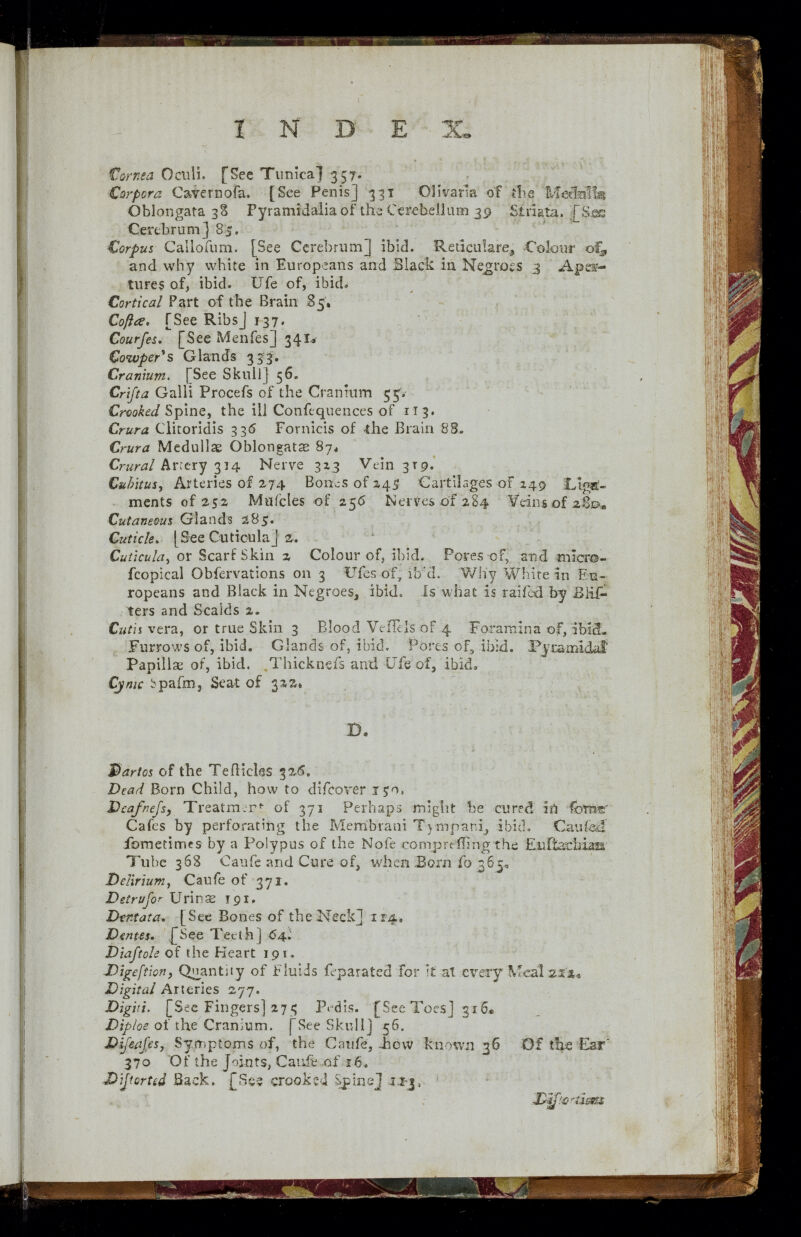 INDEX.
Cornea Oculi. [See Tunica] 357.
Corpora Cavernoſa. [See Penis] 331 Olivaria of the Medulla
Oblongata 38 Pyramidalia of the Cerebellum 39 Striata. [See
Cerebrum] 85.
Corpus Calloſum. [See Cerebrum] ibid. Reticulare, Colour of,
and why white in Europeans and Black in Negroes 3 Aper-
tures of, ibid. Uſe of, ibid.
Cortical Part of the Brain 85.
Coſtæ. [See Ribs] 137.
Courſes. [See Menſes] 341.
Cowper's Glands 333.
Cranium. [See Skull] 56.
Criſta Galli Proceſs of the Cranium 55.
Crooked Spine, the ill Conſequences of 113.
Crura Clitoridis 336 Fornicis of the Brain 88.
Crura Medullæ Oblongatæ 87.
Crural Artery 314 Nerve 323 Vein 319.
Cubitus, Arteries of 274 Bones of 245 Cartilages of 249 Liga-
ments of 252 Muſcles of 256 Nerves of 284 Veins of 280.
Cutaneous Glands 285.
Cuticle. [See Cuticula] 2.
Cuticula, or Scarf Skin 2 Colour of, ibid. Pores of, and micro-
ſcopical Obſervations on 3 Uſes of, ib'd. Why White in Eu-
ropeans and Black in Negroes, ibid. Is what is raiſed by Bliſ-
ters and Scalds 2.
Cutis vera, or true Skin 3 Blood Veſſels of 4 Foramina of, ibid.
Furrows of, ibid. Glands of, ibid. Pores of, ibid. Pyramidal
Papillæ of, ibid. Thickneſs and Uſe of, ibid.
Cynic Spaſm, Seat of 322.
D.
Dartos of the Teſticles 326.
Dead Born Child, how to diſcover 150.
Deafneſs, Treatment of 371 Perhaps might be cured in ſome
Caſes by perforating the Membrani Tympani, ibid. Cauſed
ſometimes by a Polypus of the Noſe compreſſing the Euſtachian
Tube 368 Cauſe and Cure of, when Born ſo 365.
Delirium, Cauſe of 371.
Detruſor Urinæ 191.
Dentata. [See Bones of the Neck] 114.
Dentes. [See Teeth] 64.
Diaſtole of the Heart 191.
Digeſtion, Quantity of Fluids ſeparated for it at every Meal 212.
Digital Arteries 277.
Digiti. [See Fingers] 275 Pedis. [See Toes] 316.
Diploe of the Cranium. [See Skull] 56.
Diſeaſes, Symptoms of, the Cauſe, how known 36 Of the Ear
370 Of the Joints, Cauſe of 16.
Diſtorted Back. [See crooked Spine] 113.
Diſtortions